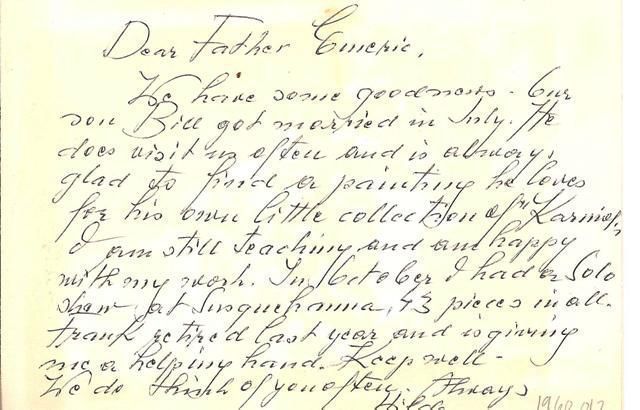 Dear Father Emeric,
We have some goodnews - Our
son Bill got married in July. He
does visit us often and is always
glad to find a painting he loves
for his own little collection of "Karniol"s
I am still teaching and am happy
with my work. In October I had a Solo
show at Susquehanna, 43 pieces in all.
Frank retired last year and is giving
me a helping hand. Keep well -
We do think of you often. Always
Hilda